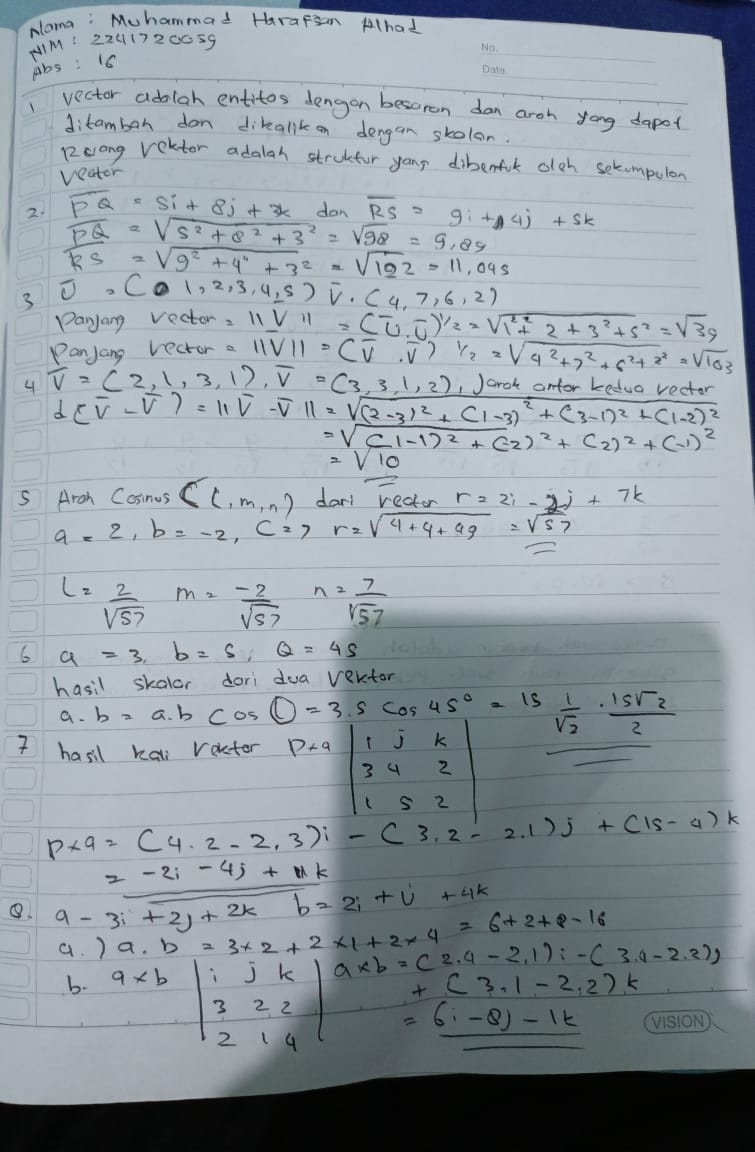 Nama : Muhammad Harafsan Alhad
NIM : 2241720059
Abs : 16
No.
Date.
1 vector adalah entitas dengan besaran dan arah yang dapat
ditambah dan dikalikan dengan skalar.
Ruang vektor adalah struktur yang dibentuk oleh sekumpulan
vector
2. PQ = 5i + 8j + 3k dan RS = 9i + 4j + 5k
PQ = √5² + 8² + 3² = √98 = 9,89
RS = √9² + 4² + 3² = √192 = 11,045
3 Ū = (1,2,3,4,5) V̄ . (4,7,6,2)
Panjang vector = ||V|| = (Ū,Ū)½ = √1² + 2 + 3² + 5² = √39
Panjang vector = ||V|| = (V̄ .V̄) ½ = √4² + 7² + 6² + 2² = √103
4 V̄ = (2,1,3,1), V̄ = (3,3,1,2), Jarak antar kedua vector
d(V̄ - V̄) = ||V̄ - V̄|| = √(2-3)² + (1-3)² + (3-1)² + (1-2)²
= √(1-1)² + (2)² + (2)² + (-1)²
= √10
5 Arah Cosinus (l,m,n) dari vector r = 2i - 2j + 7k
a = 2, b = -2, C = 7 r = √4+4+49 = √57
l = 2/√57 m = -2/√57 n = 7/√57
6 a = 3, b = 5, Q = 45
hasil skalar dari dua vektor
a.b = a.b Cos θ = 3.5 Cos 45° = 15 1/√2 . 15√2/2
7 hasil kali vektor P×q | i j k
3 4 2
1 5 2 |
p×q = (4.2 - 2,3)i - (3,2 - 2.1)j + (15-4)k
= -2i - 4j + 11k
8. a - 3i + 2j + 2k b = 2i + j + 4k
a.) a.b = 3×2 + 2×1 + 2×4 = 6+2+8-16
b. a×b | i j k | a×b = (2.4 - 2.1)i - (3.4 - 2.2)j
3 2 2 + (3.1 - 2.2)k
2 1 4 = 6i - 8j - 1k
VISION